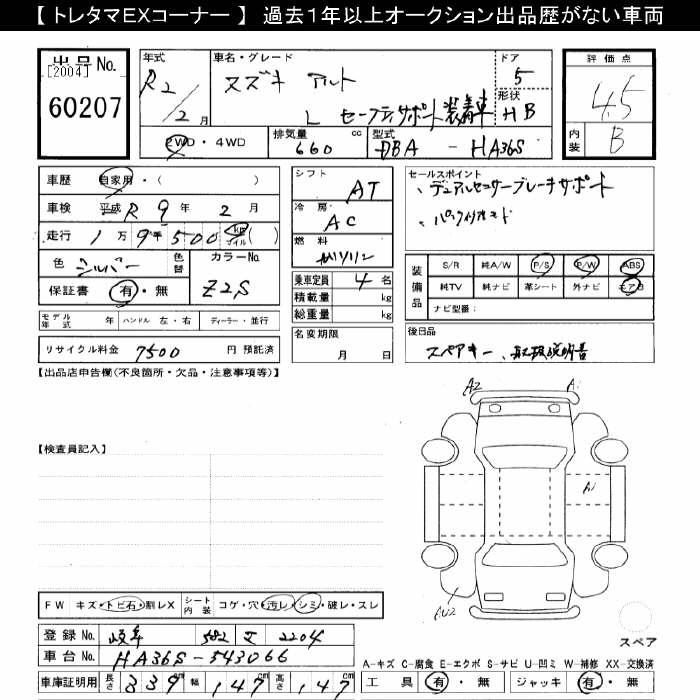 【 トレタマEXコーナー 】 過去1年以上オークション出品歴がない車両
出品No.
[2004]
60207
年式
R2
/2 月
車名・グレード
スズキ アルト
L セーフティサポート装着車
ドア
5
形状
HB
評価点
4.5
内装
B
2WD・4WD
排気量
660 cc
型式
DBA - HA36S
車歴
自家用・( )
車検
平成 R 9 年 2 月
走行
1 万 9 千 500 km マイル ( )
色
シルバー
色替
カラーNo.
Z2S
保証書
有・無
モデル年式 年
ハンドル 左・右
ディーラー・並行
リサイクル料金 7500 円 預託済
シフト
AT
冷房
AC
燃料
ガソリン
乗車定員 4 名
積載量 kg
総重量 kg
名変期限
月 日
セールスポイント
、デュアルセンサーブレーキサポート
装備品
S/R 純A/W P/S P/W ABS
純TV 純ナビ 革シート 外ナビ エアB
ナビ型番:
後日品
スペアキー、取扱説明書
【出品店申告欄(不良箇所・欠品・注意事項等)】
A2
A1
【検査員記入】
A1
AU2
FW キズ・トビ石・割レX
シート内装 コゲ・穴・汚レ・シミ・破レ・スレ
登録No. 岐阜 582 2204
車台No. HA36S-543066
車庫証明用 長さ 339cm 幅 147cm 高さ 147cm
スペア
A-キズ C-腐食 E-エクボ S-サビ U-凹ミ W-補修 XX-交換済
工具 有・無 ジャッキ 有・無